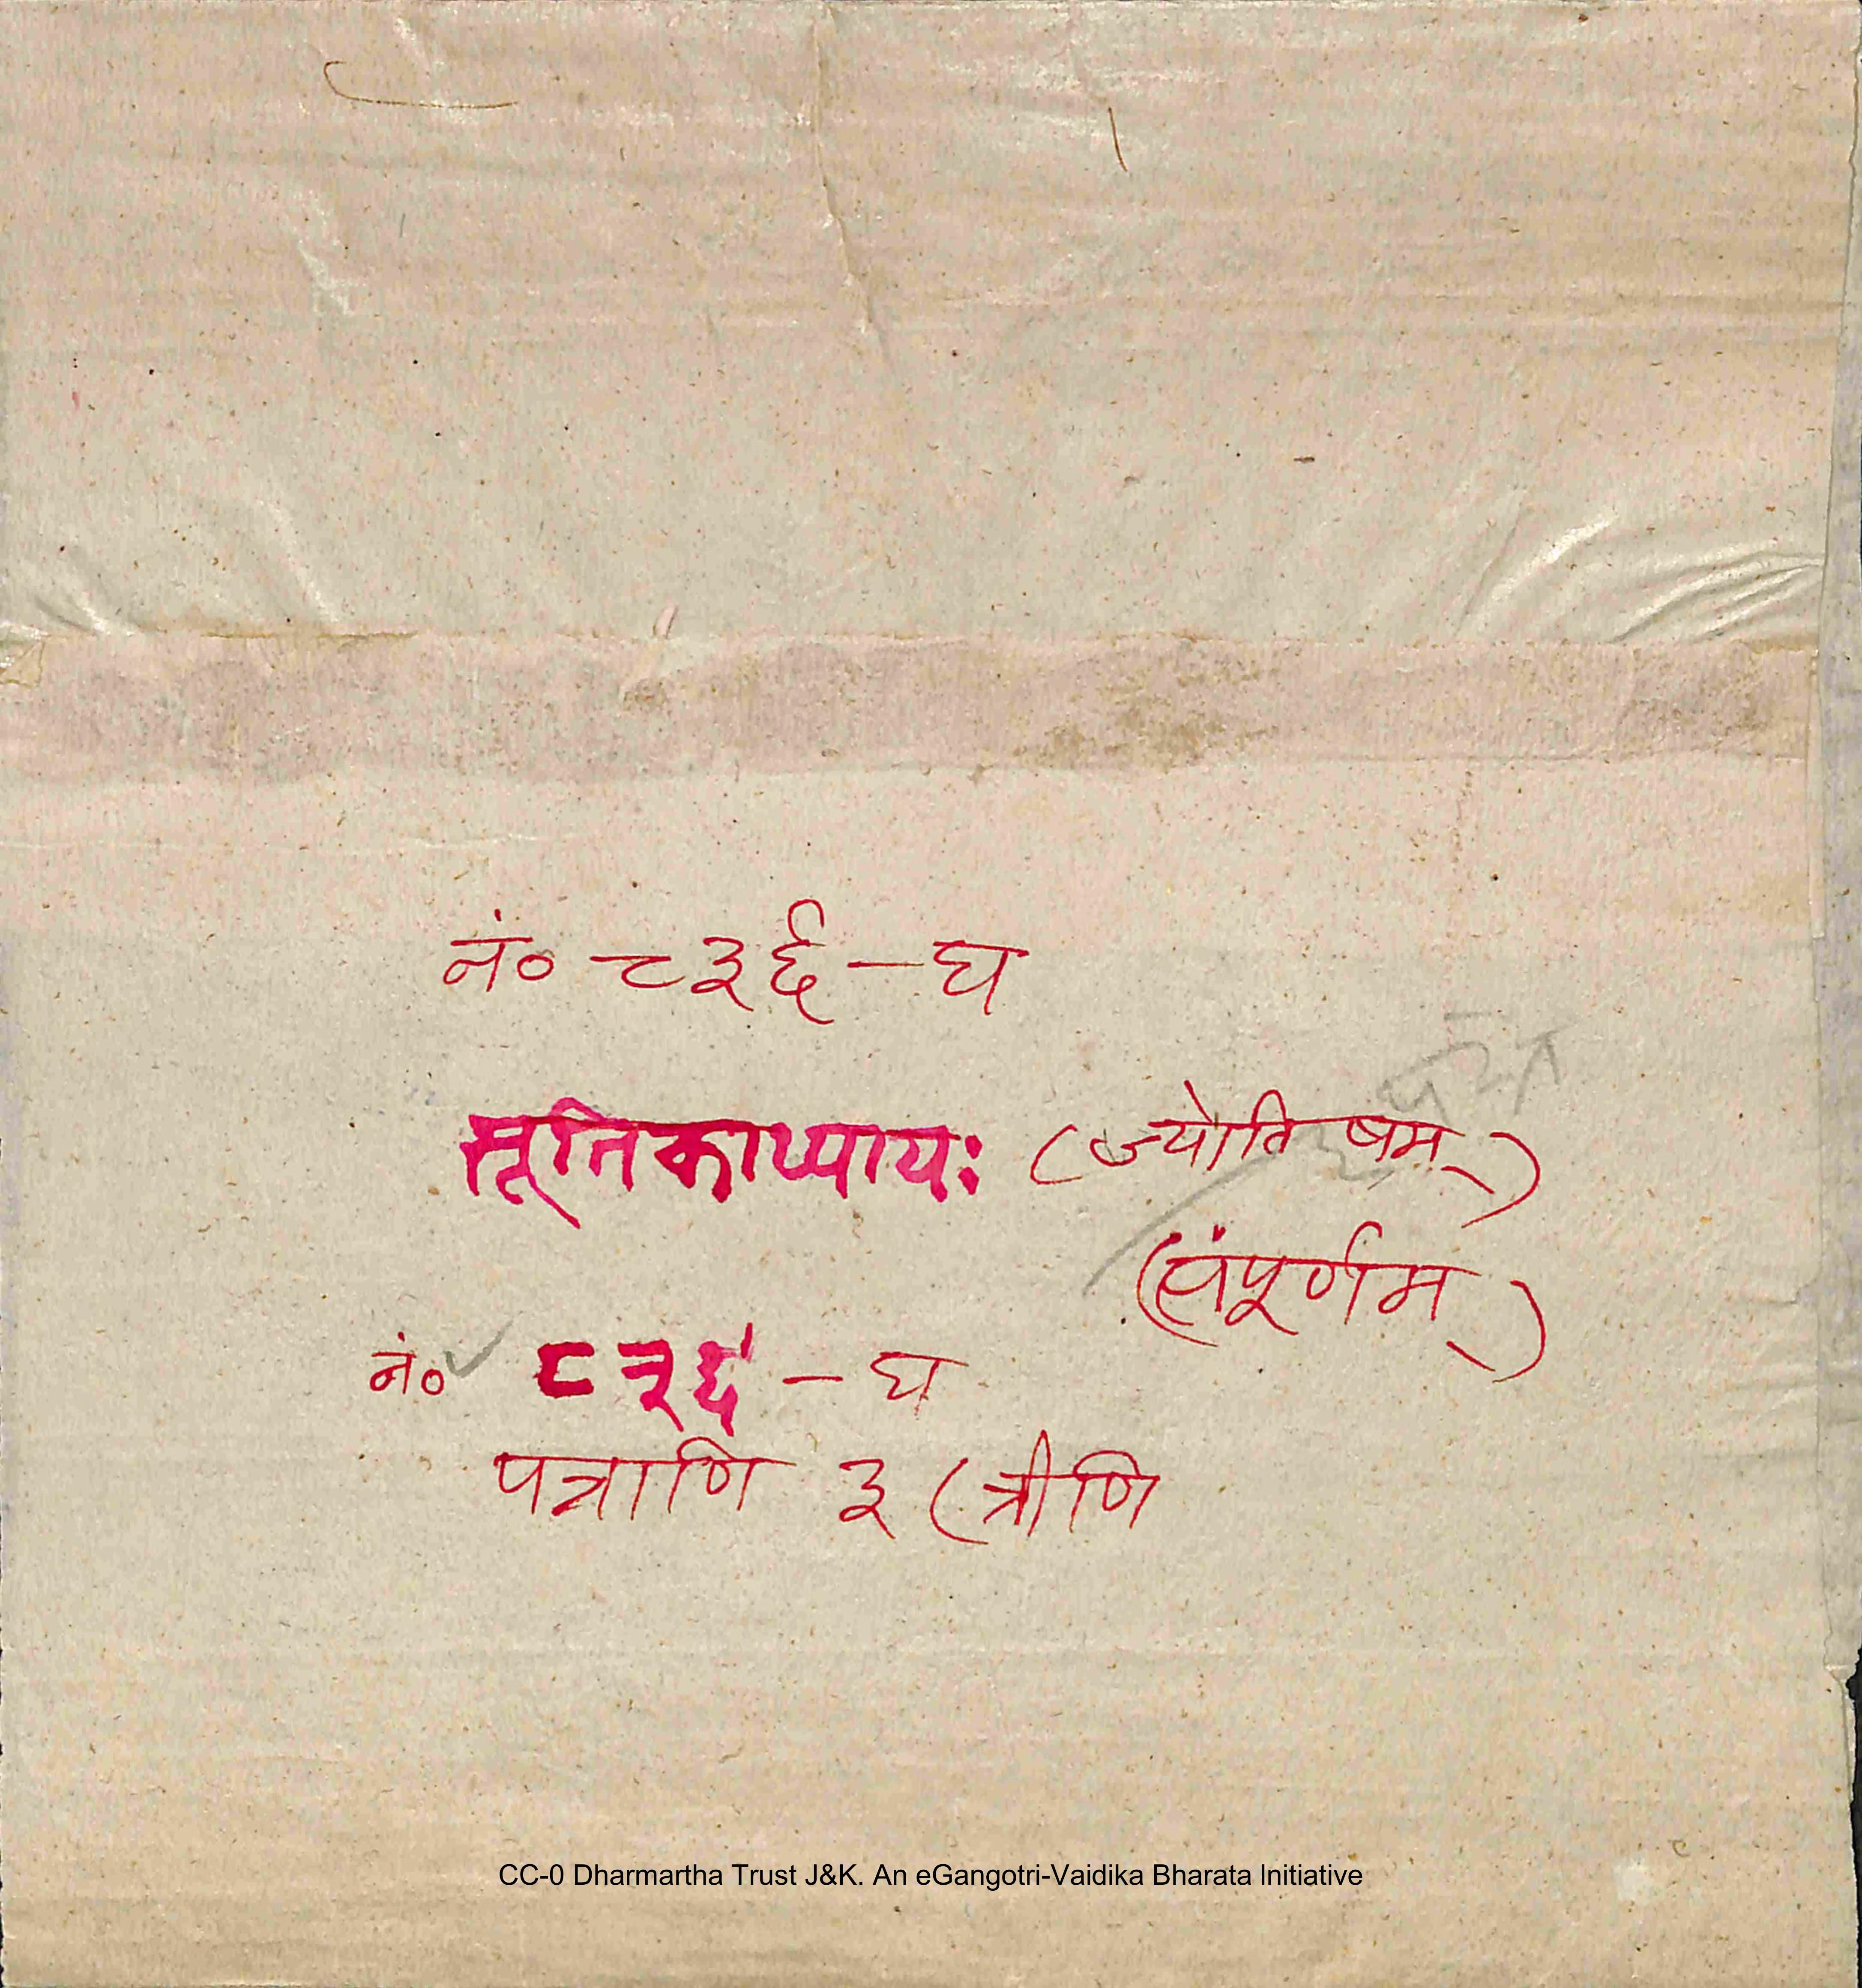 नं० ८३६ — घ
सूतिकाध्यायः (ज्योतिषम्)
(संपूर्णम्)
नं० ८३६ — घ
पत्राणि ३ (त्रीणि
CC-0 Dharmartha Trust J&K. An eGangotri-Vaidika Bharata Initiative